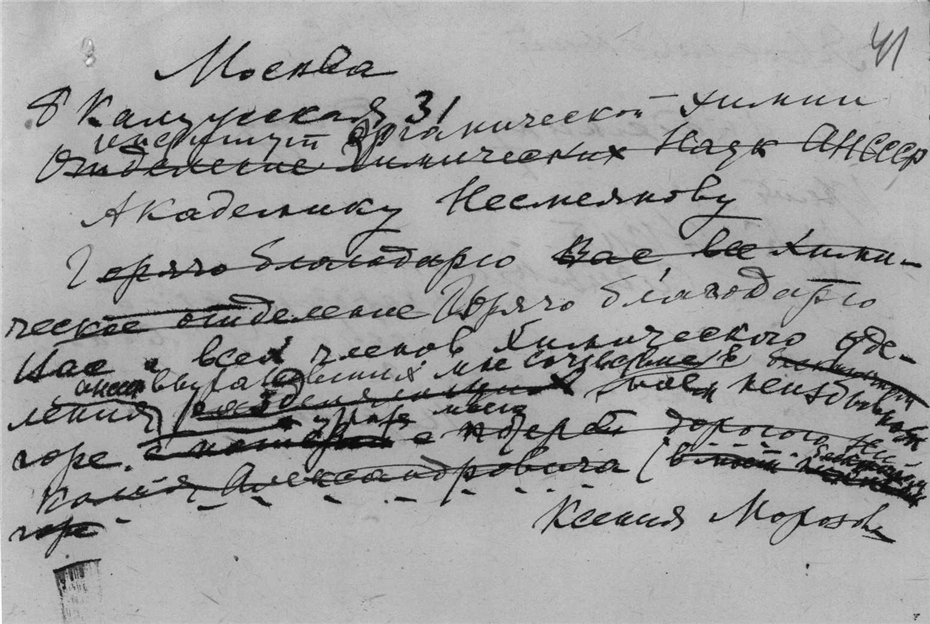 41
Москва
Б Калужская 31
институт органической химии
Отделение Химических Наук АНСССР
Академику Несмеянову
Горячо благодарю Вас все Хими-
ческое отделение Горячо благодарю
Вас и всех членов Химического отде-
выразивших мне сочувствие в
ления разделяющих моем неизбывном
горе. с потерей дорогого Ни-
колая Александровича
горе
Ксения Морозова